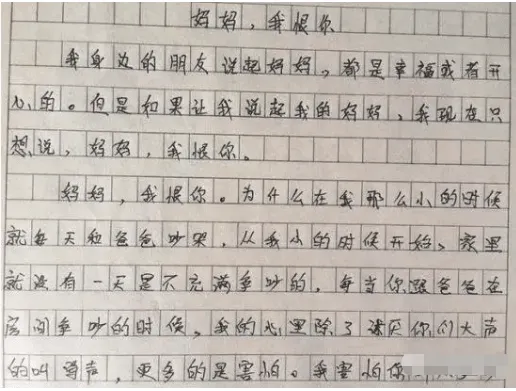 妈妈,我恨你
我身边的朋友说起妈妈,都是幸福或者开
心的。但是如果让我说起我的妈妈,我现在只
想说,妈妈,我恨你。
妈妈,我恨你。为什么在我那么小的时候
就每天和爸爸吵架,从我小的时候开始,家里
就没有一天是不充满争吵的,每当你跟爸爸在
房间争吵的时候,我的心里除了讨厌你们大声
的叫骂声,更多的是害怕。我害怕你